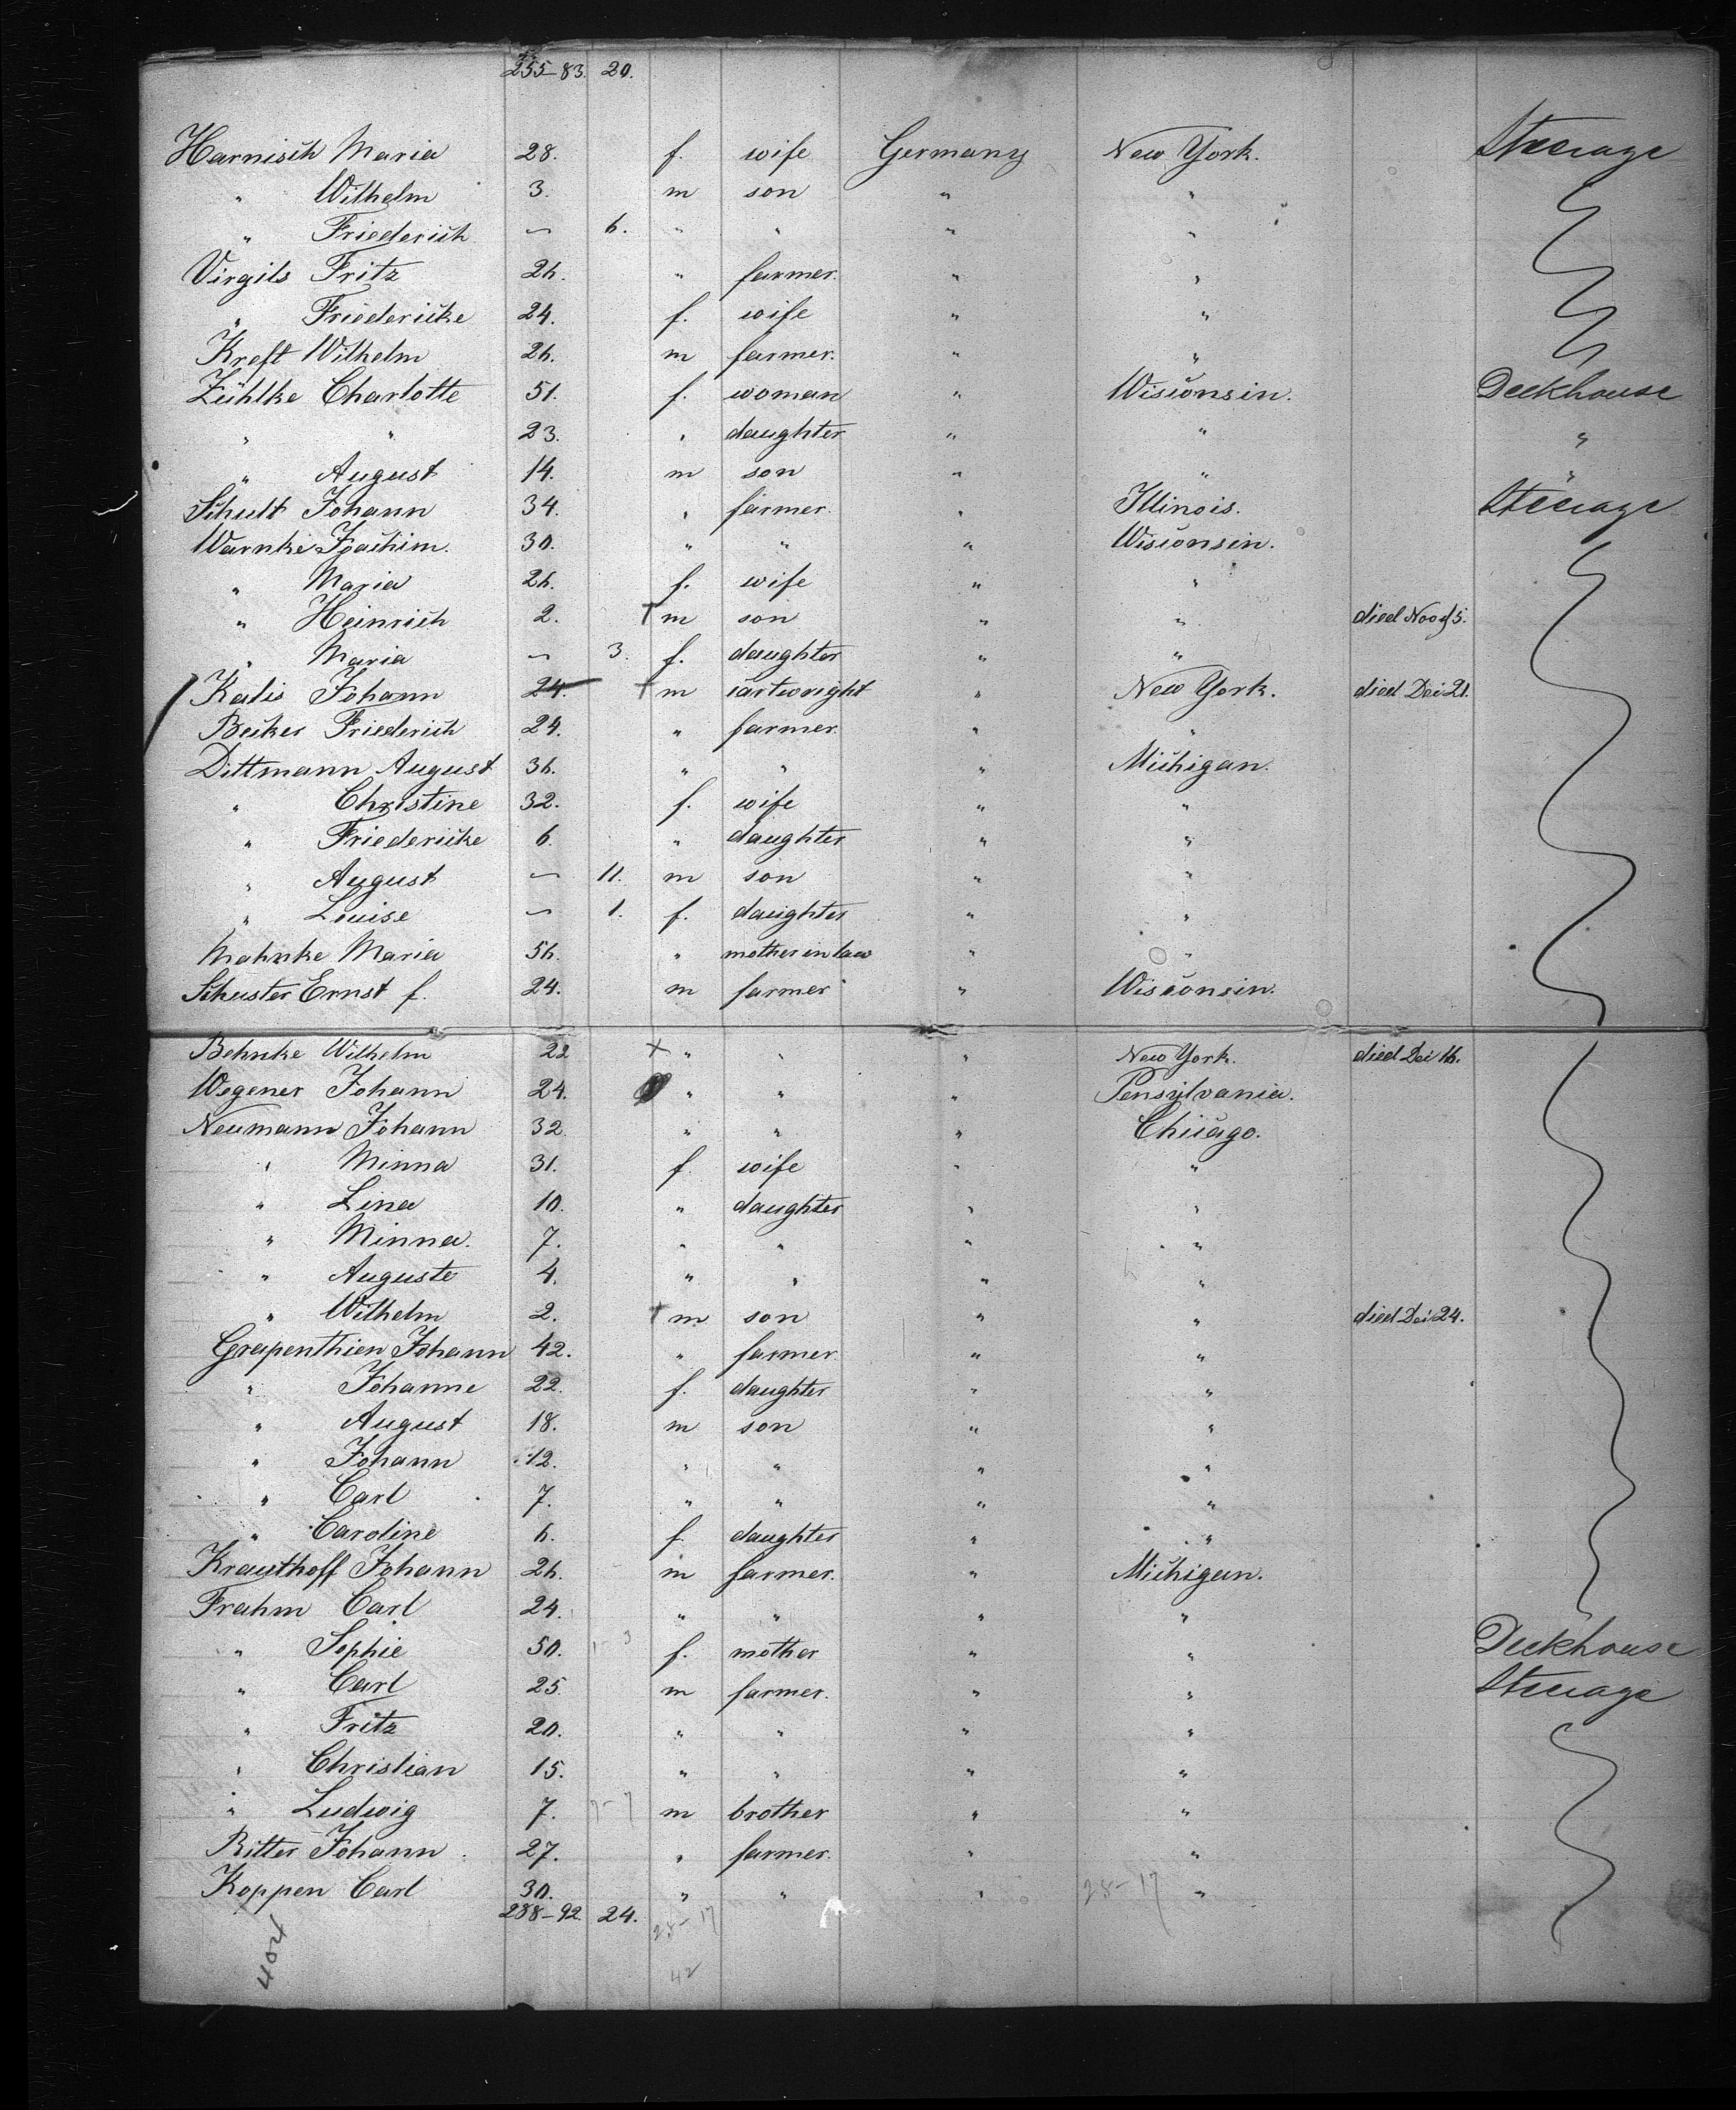 255-83. 20.
Harnisch Maria 28. f. wife Germany New York. Steerage
" Wilhelm 3. m son " "
" Friederich – 6. " " " "
Virgils Fritz 26. " farmer. " "
" Friedericke 24. f. wife " "
Kreft Wilhelm 26. m farmer. " "
Zühlke Charlotte 51. f. woman " Wisconsin. Deckhouse
" " 23. " daughter " " "
" August 14. m son " " "
Schult Johann 34. " farmer. " Illinois. Steerage
Warnke Joachim. 30. " " " Wisconsin.
" Maria 26. f. wife " "
" Heinrich 2. † m son " " died Nov 5.
" Maria – 3. f. daughter " "
Kalis Johann 24. † m cartwright " New York. died Dec 21.
Becker Friederich 24. " farmer. " "
Dittmann August 36. " " " Michigan.
" Christine 32. f. wife " "
" Friedericke 6. " daughter " "
" August – 11. m son " "
" Louise – 1. f. daughter " "
Mahnke Maria 56. " mother in law " "
Schuster Ernst f. 24. m farmer " Wisconsin.
Behnke Wilhelm 22 × " " " New York. died Dec 16.
Wegener Johann 24. " " " Pensylvania.
Neumann Johann 32. " " " Chicago.
" Minna 31. f. wife " "
" Lina 10. " daughter " "
" Minna. 7. " " " "
" Auguste 4. " " " "
" Wilhelm 2. † m son " " died Dec 24.
Grapenthien Johann 42. " farmer. " "
" Johanne 22. f. daughter " "
" August 18. m son " "
" Johann 12. " " " "
" Carl 7. " " " "
" Caroline 6. f. daughter " "
Krauthoff Johann 26. m farmer. " Michigan.
Frahm Carl 24. " " " "
" Sophie 50. 1-3 f. mother " " Deckhouse
" Carl 25. m farmer. " " Steerage
" Fritz 20. " " " "
" Christian 15. " " " "
" Ludwig 7. 7-7 m brother " "
Ritter Johann 27. " farmer. " "
Koppen Carl 30. " " " 28-17 "
288-92. 24. 28-17
404
42